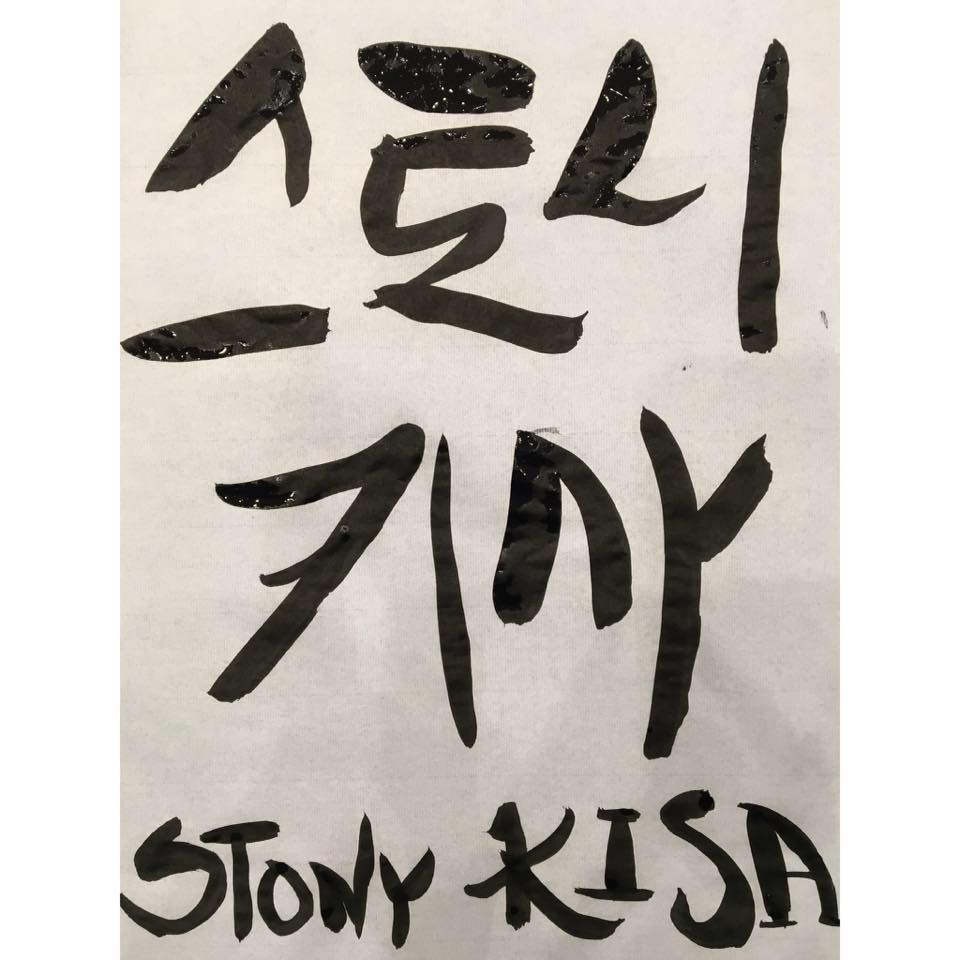 스토니
키사
STONY KISA